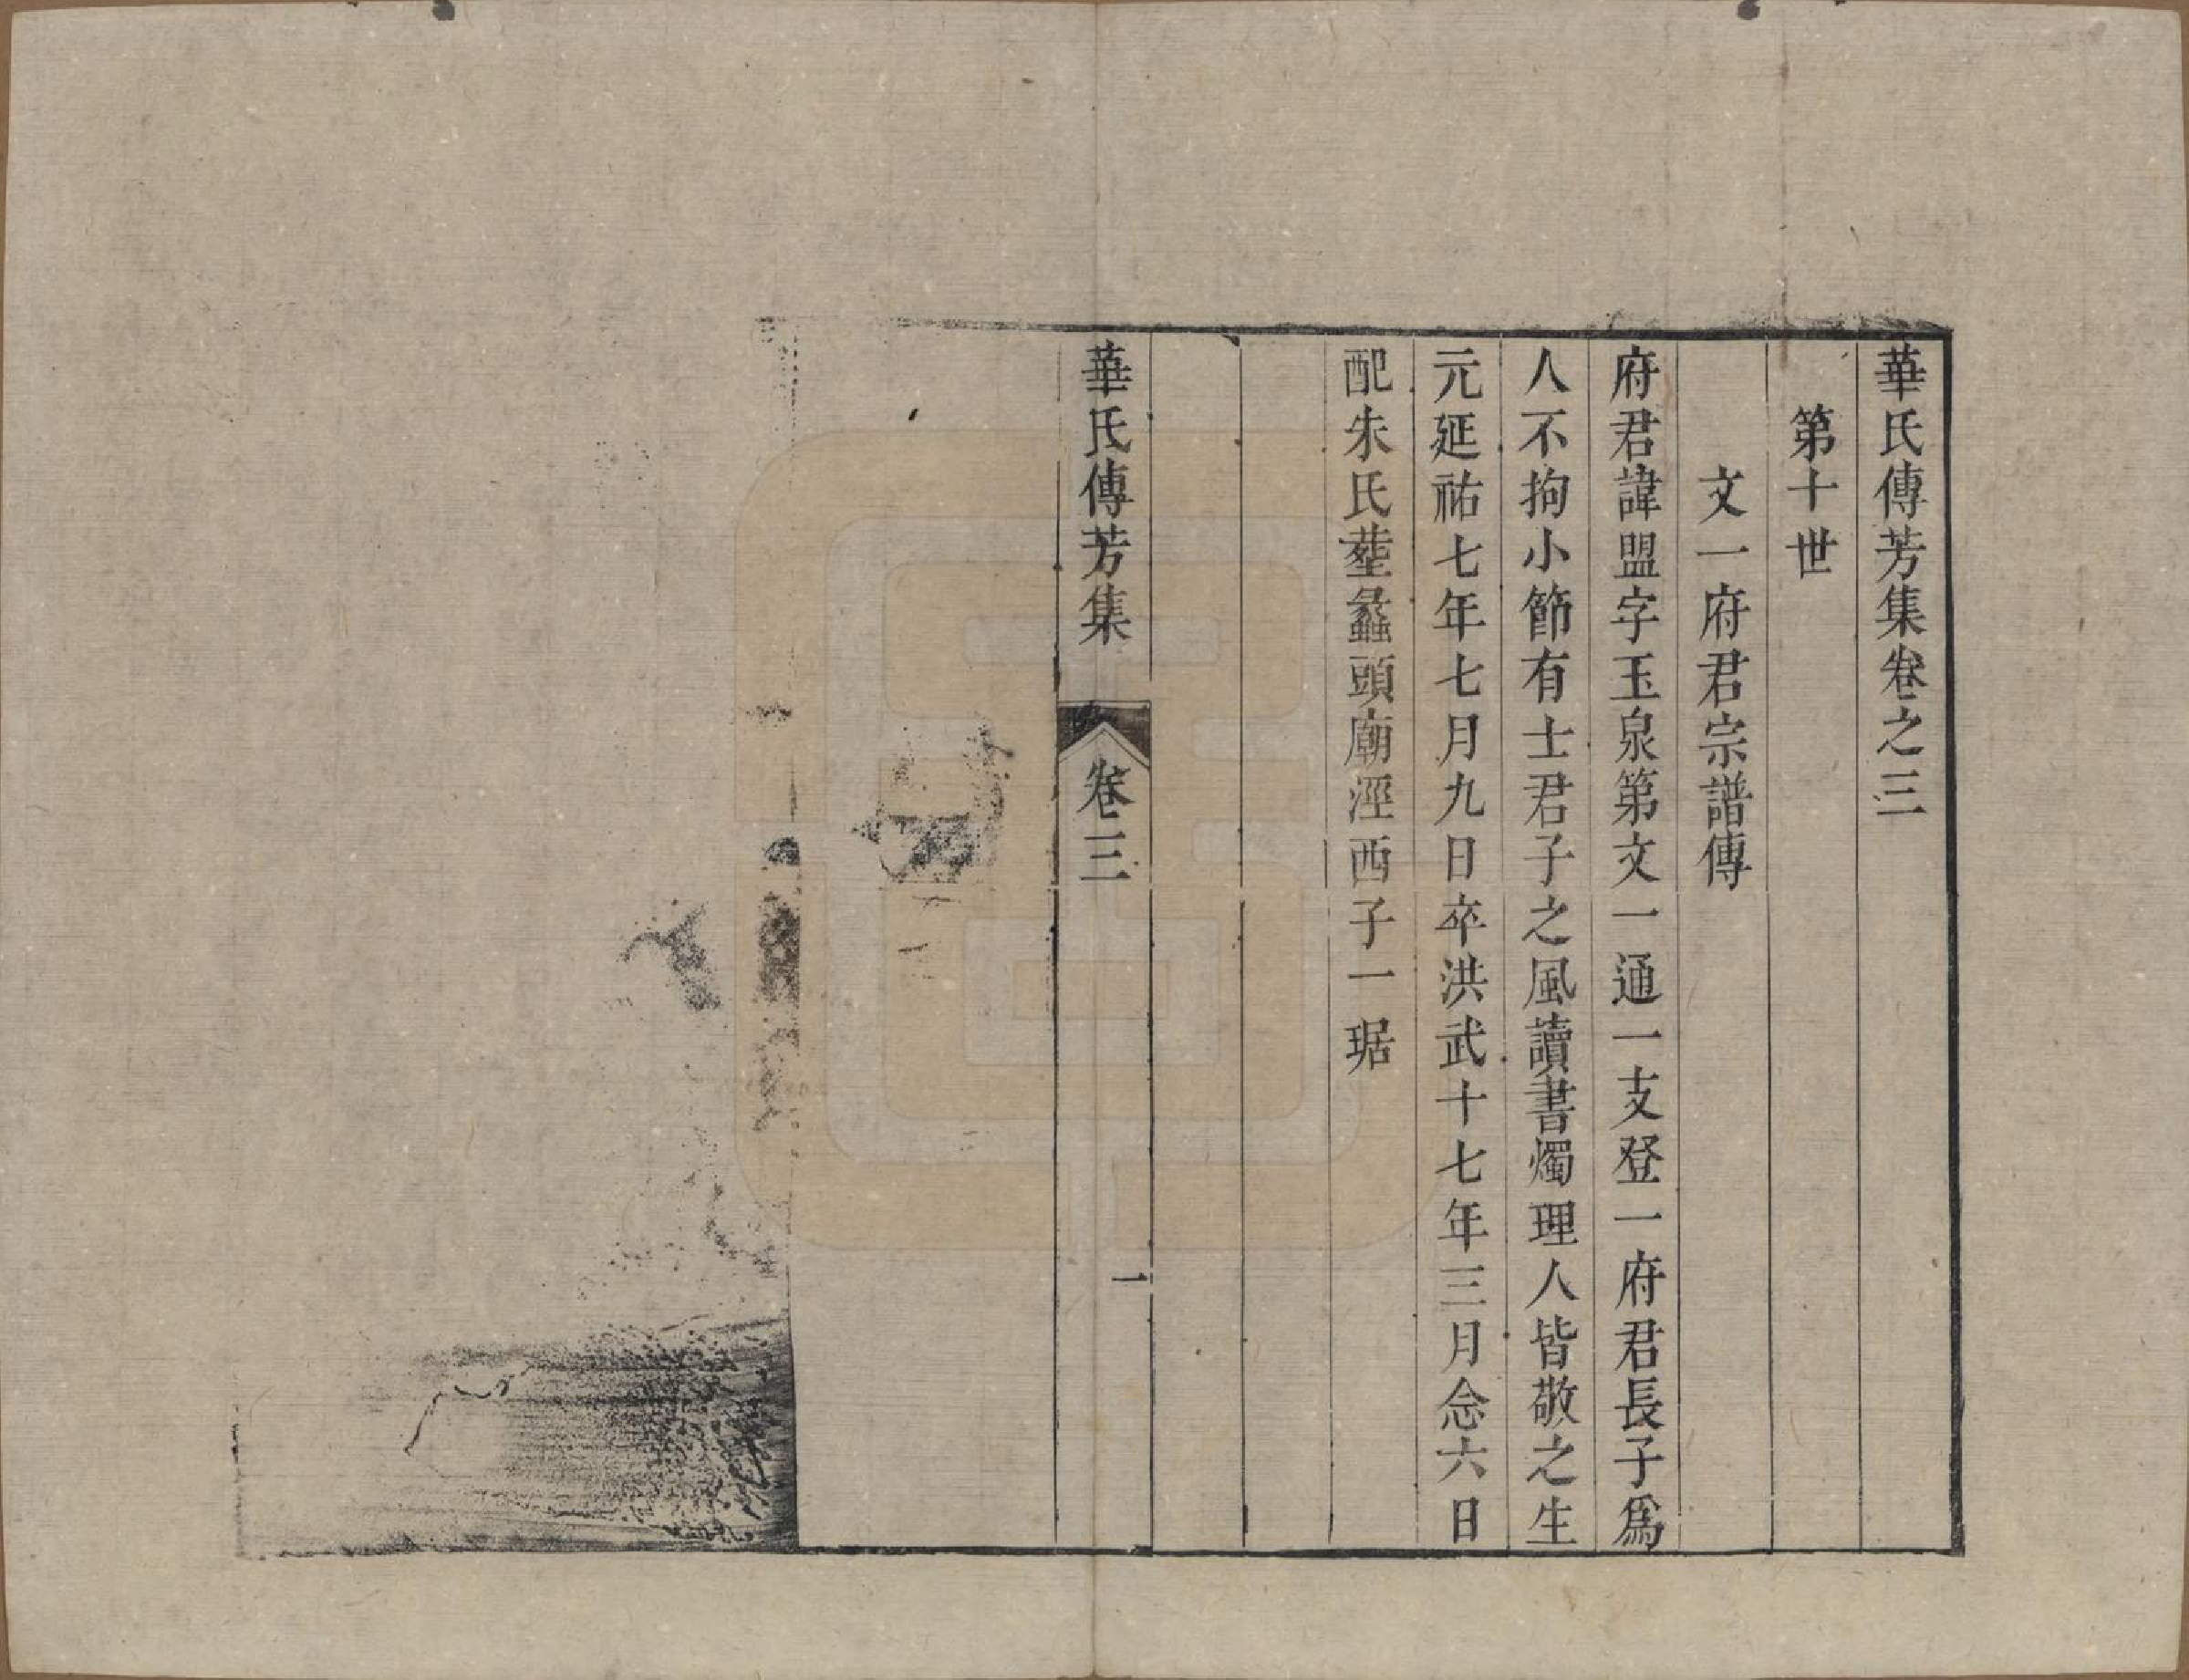 華氏傳芳集卷之三
第十世
文一府君宗譜傳
府君諱盟字玉泉第文一通一支登一府君長子爲
人不拘小節有士君子之風讀書燭理人皆敬之生
元延祐七年七月九日卒洪武十七年三月念六日
配朱氏塟蠡頭廟涇西子一琚
華氏傳芳集
卷三
一